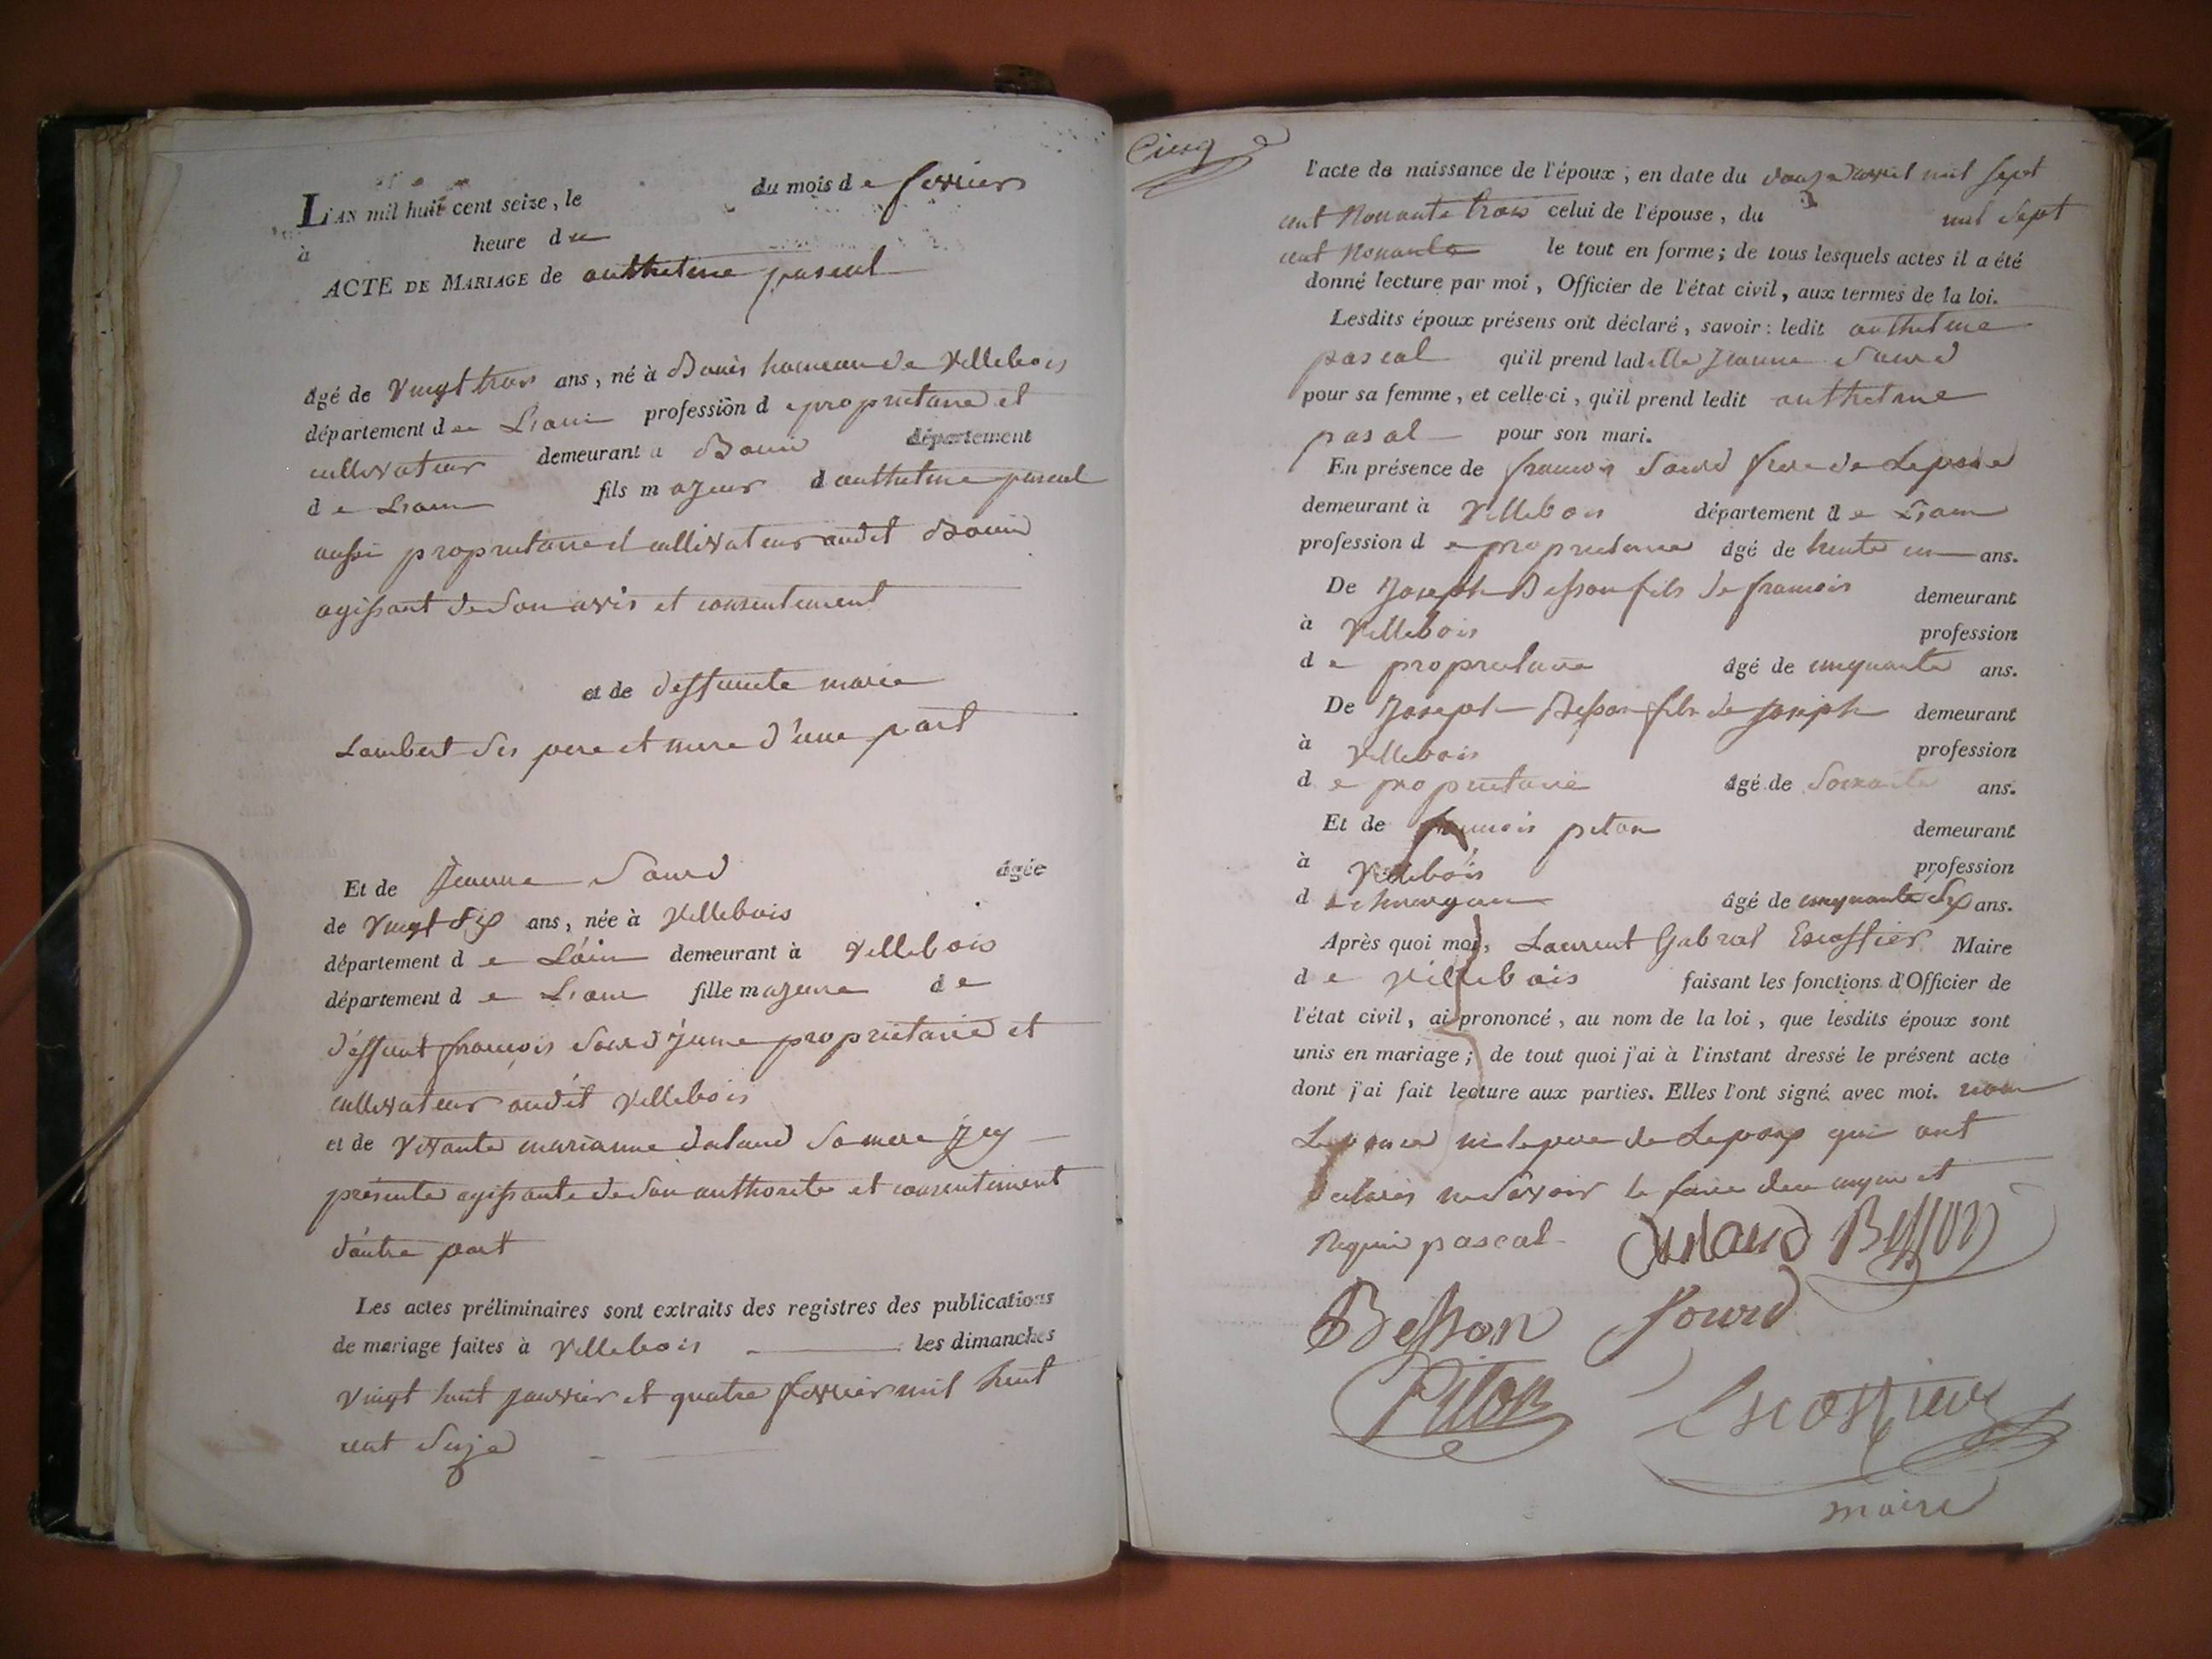 L'an mil huit cent seize, le du mois de fevrier
à heure du
ACTE DE MARIAGE de anthelme pascal
âgé de Vingt trois ans, né à Bouis hameau de Villebois
département de L'ain profession de proprietaire et
cultivateur demeurant a Bouis département
de L'ain fils majeur d'anthelme pascal
aussi proprietaire et cultivateur audit Bouis
agissant de son avis et consentement
et de deffunte marie
Lambert ses pere et mere d'une part
Et de Jeanne Sourd âgée
de Vingt six ans, née à Villebois
département de L'ain demeurant à Villebois
département de L'ain fille majeure de
deffunt françois Sourd jeune proprietaire et
cultivateur audit Villebois
et de Vivante marianne dulaud sa mere icy
présente agissante de son authorité et consentement
d'autre part
Les actes préliminaires sont extraits des registres des publications
de mariage faites à Villebois les dimanches
Vingt huit janvier et quatre fevrier mil huit
cent seize
Cinq
l'acte de naissance de l'époux, en date du douze avril mil sept
cent Nonante trois celui de l'épouse, du mil sept
cent Nonante le tout en forme; de tous lesquels actes il a été
donné lecture par moi, Officier de l'état civil, aux termes de la loi.
Lesdits époux présens ont déclaré, savoir: ledit anthelme
pascal qu'il prend ladite Jeanne Sourd
pour sa femme, et celle-ci, qu'il prend ledit anthelme
pascal pour son mari.
En présence de françois Sourd frere de Lepouse
demeurant à Villebois département de L'ain
profession de proprietaire âgé de trente un ans.
De Joseph Besson fils de françois demeurant
à Villebois profession
de proprietaire âgé de cinquante ans.
De Joseph Besson fils de joseph demeurant
à Villebois profession
de proprietaire âgé de Soixante ans.
Et de françois piton demeurant
à Villebois profession
de chirurgien âgé de cinquante six ans.
Après quoi moi, Laurent Gabriel Escoffier Maire
de Villebois faisant les fonctions d'Officier de
l'état civil, ai prononcé, au nom de la loi, que lesdits époux sont
unis en mariage; de tout quoi j'ai à l'instant dressé le présent acte
dont j'ai fait lecture aux parties. Elles l'ont signé avec moi. non
Lepouse ni le pere de Lepoux qui ont
declarés ne Savoir le faire de ce enquis et
Requis pascal dulaud Besson
Besson Sourd
Piton Escoffier
maire